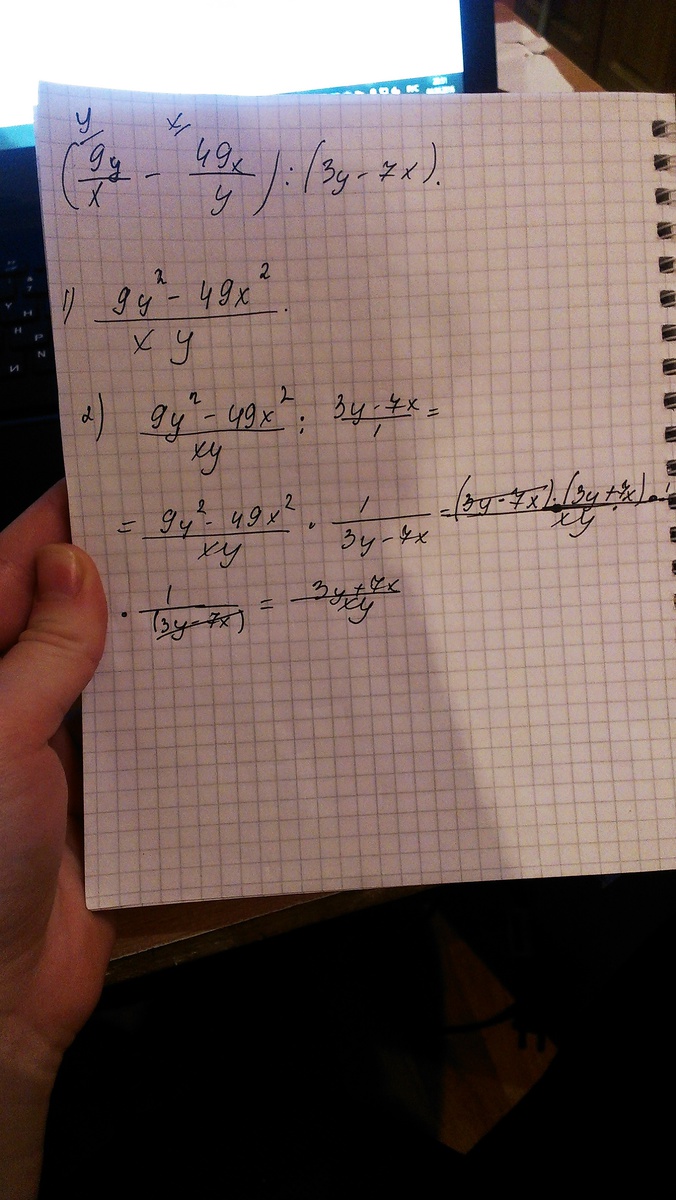 y/ x/
(9y/x - 49x/y) : (3y - 7x).
1) (9y² - 49x²)/(x y).
2) (9y² - 49x²)/(xy) : (3y - 7x)/1 =
= (9y² - 49x²)/(xy) · 1/(3y - 7x) = ((3y - 7x) · (3y + 7x))/(xy) ·
· 1/(3y - 7x) = (3y + 7x)/(xy)